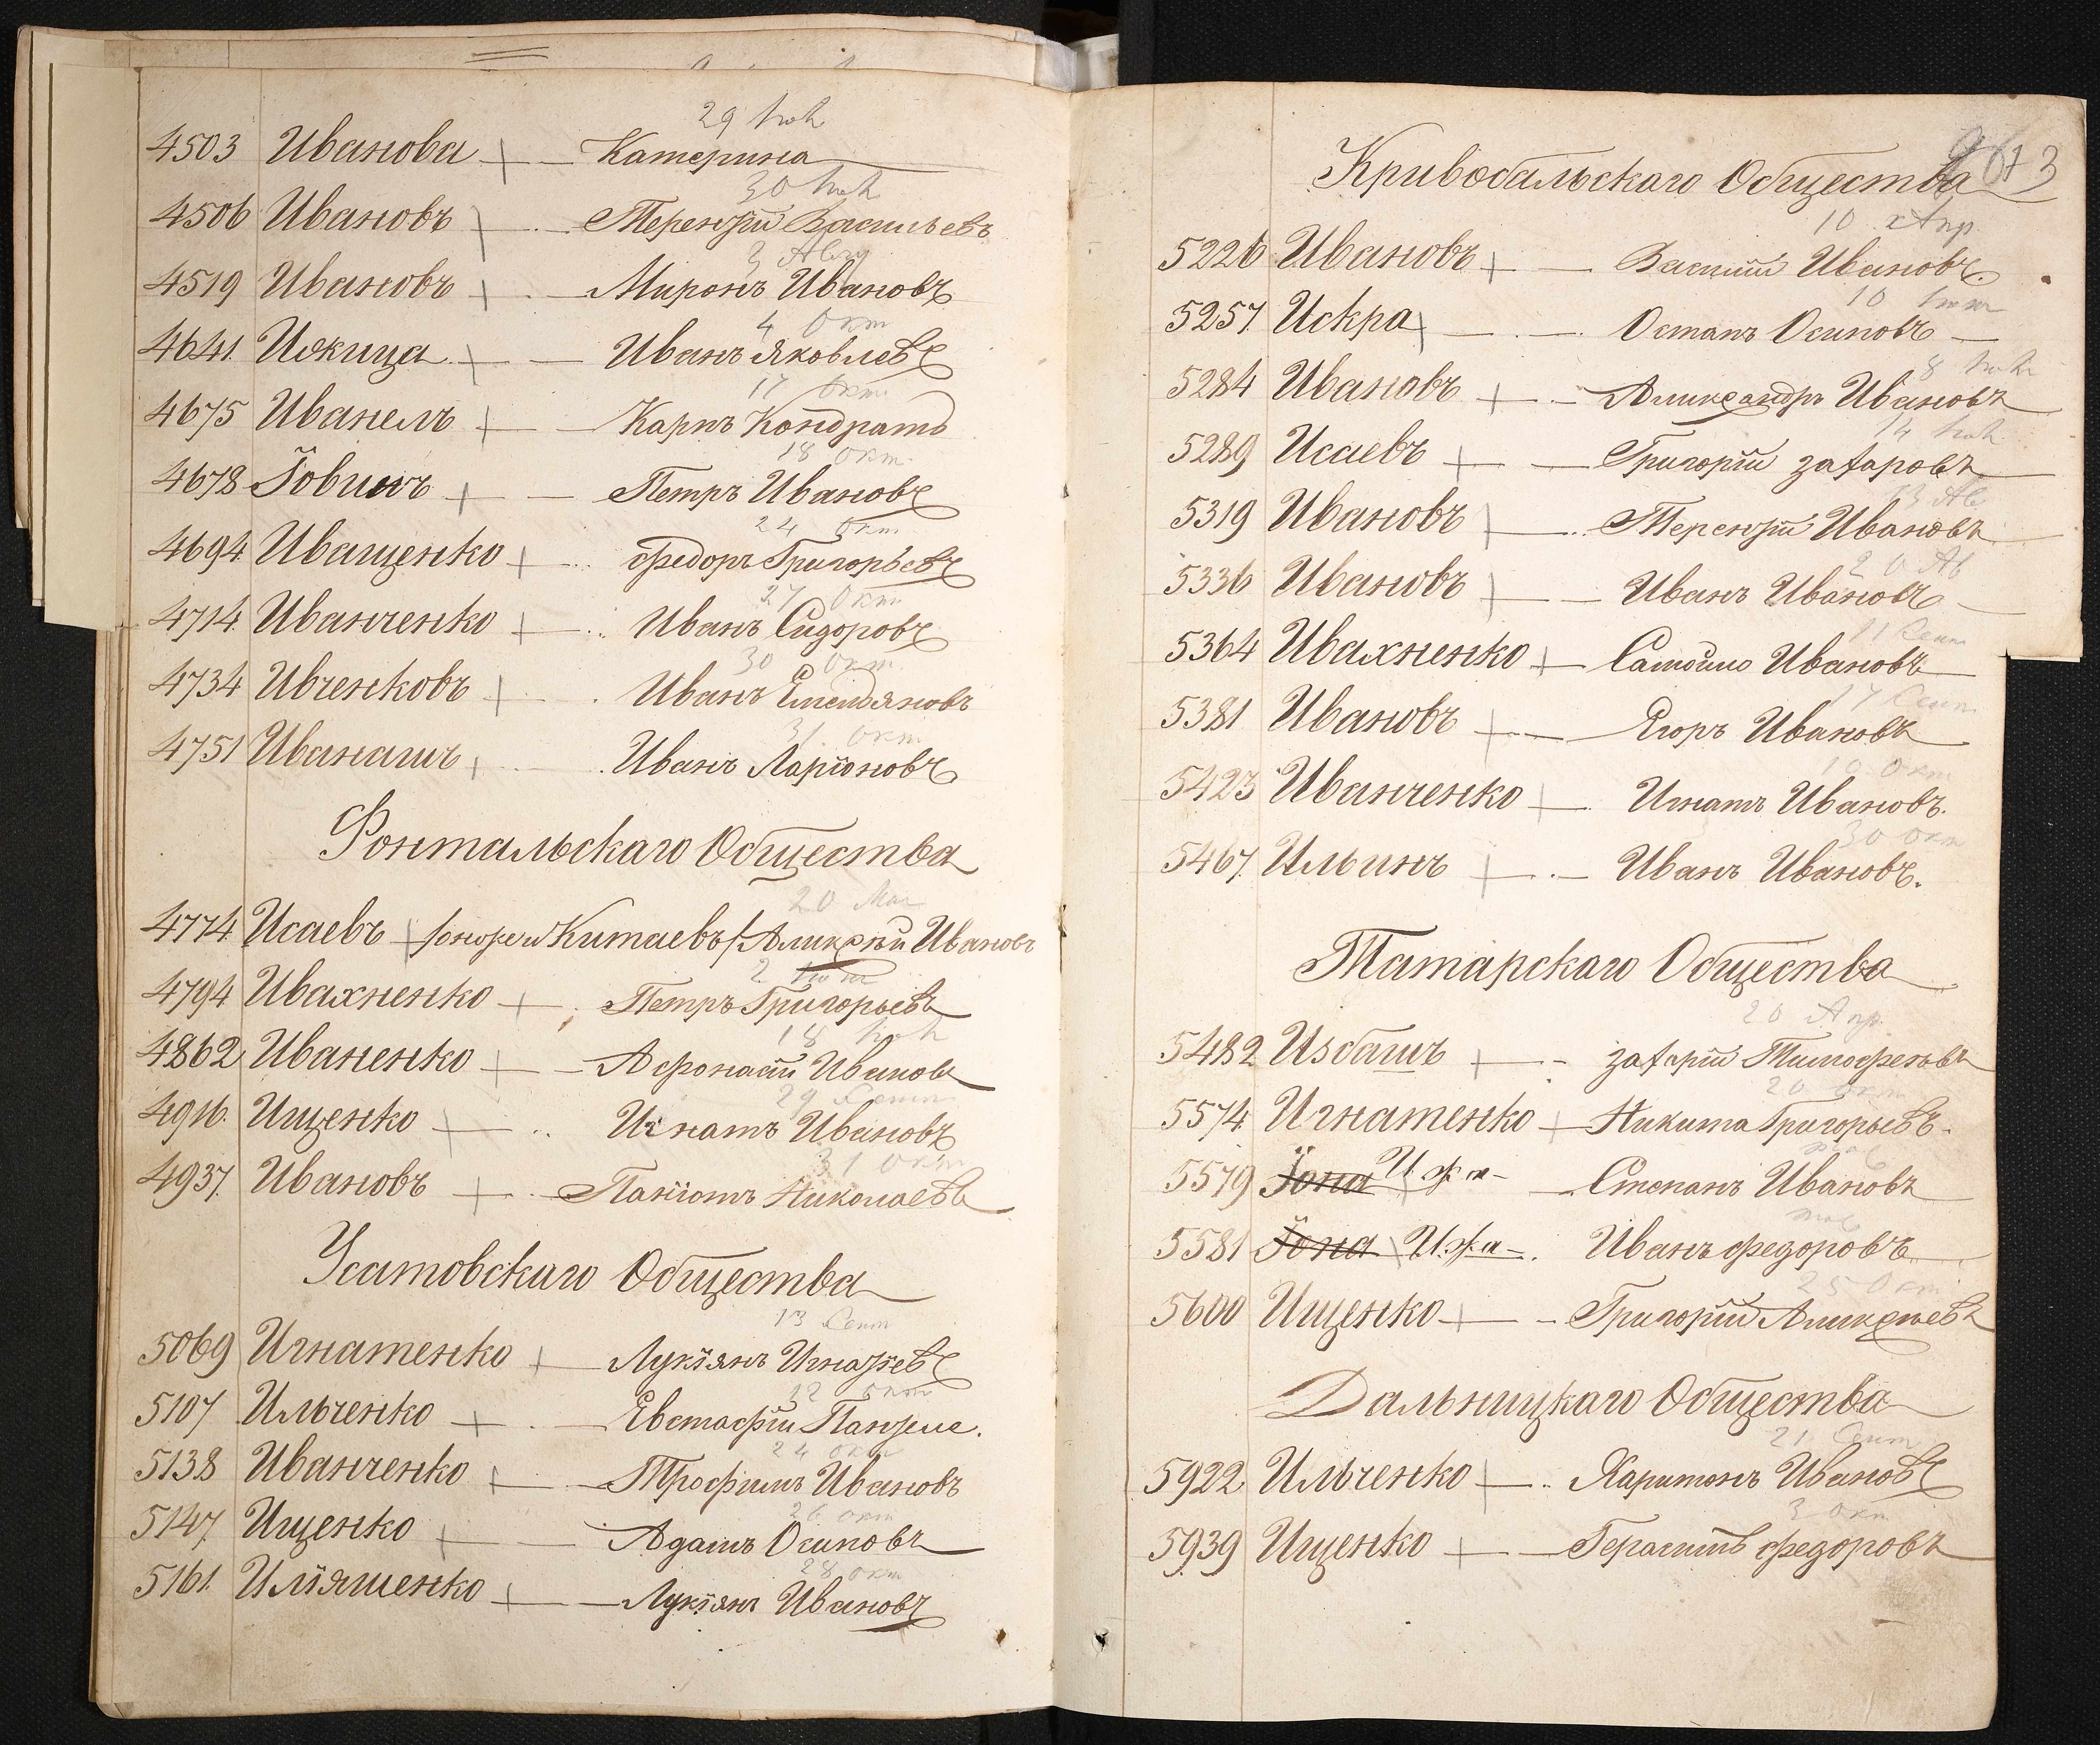 29
4503 Иванова Катерина
30
4506 Ивановъ Терентій Васильевъ
3 Авгу
4519 Ивановъ Миронъ Ивановъ
4 Окт
4641. Иванъ Яковлевъ
17 Окт.
4675 Иванель Карпъ Кондрать
18 окт.
4678 Іовинъ Петръ Ивановъ
24 окт
4694 Иващенко Федоръ Григорьевъ
27 Окт
4714. Иванченко Иванъ Сидоровъ
30 Окт.
4734 Ивченковъ Иванъ Емельяновъ
31. Окт
4751 Иванашъ Иванъ Ларіоновъ
Фонтальскаго Общества
20 Мая
4774 Исаевъ /онже и Китаевъ/ Аликсѣй Ивановъ
2
4794 Ивахненко Петръ Григорьевъ
18
4862 Иваненко Афонасій Ивановъ
29 Сент
4916. Ищенко Игнатъ Ивановъ
31 окт
4937. Ивановъ Николаевъ
Усатовскаго Общества
13 Сент
5069 Игнатенко Лукіянъ Игнатіевъ
22 окт
5107 Ильченко Евстафій
24 окт
5138 Иванченко Трофимъ Ивановъ
26 окт
5147. Ищенко Адамъ Осиповъ
28 окт
5161. Иліяшенко Лукіянъ Ивановъ
Кривобальскаго Общества
3
10 Апр.
5226 Ивановъ Василій Ивановъ.
10
5257. Искра Остапъ Осиповъ
8
5284 Ивановъ Александръ Ивановъ
14
5289 Исаевъ Григорій Захаровъ
13 Ав
5319 Ивановъ Терентій Ивановъ
20 Ав
5336 Ивановъ Иванъ Ивановъ
11 Сент
5364 Ивахненко Самойло Ивановъ
17 Сент
5381 Ивановъ Ягоръ Ивановъ
Окт
5423 Иванченко Игнатъ Ивановъ.
30 окт
5467. Ильинъ Иванъ Ивановъ.
Татарскаго Общества
20 Апр.
5482 Избашъ Захарій Тимофеевъ
20 окт
5574 Игнатенко Никита Григорьевъ
5579 Іона Ижа Степанъ Ивановъ
5581 Іона Ижа Иванъ Федоровъ
25 Окт
5600 Ищенко Григорій Аликсѣевъ
Дальницкаго Общества
21 Сент
5922 Ильченко Харитонъ Ивановъ
3 окт
5939 Ищенко Герасимъ Федоровъ